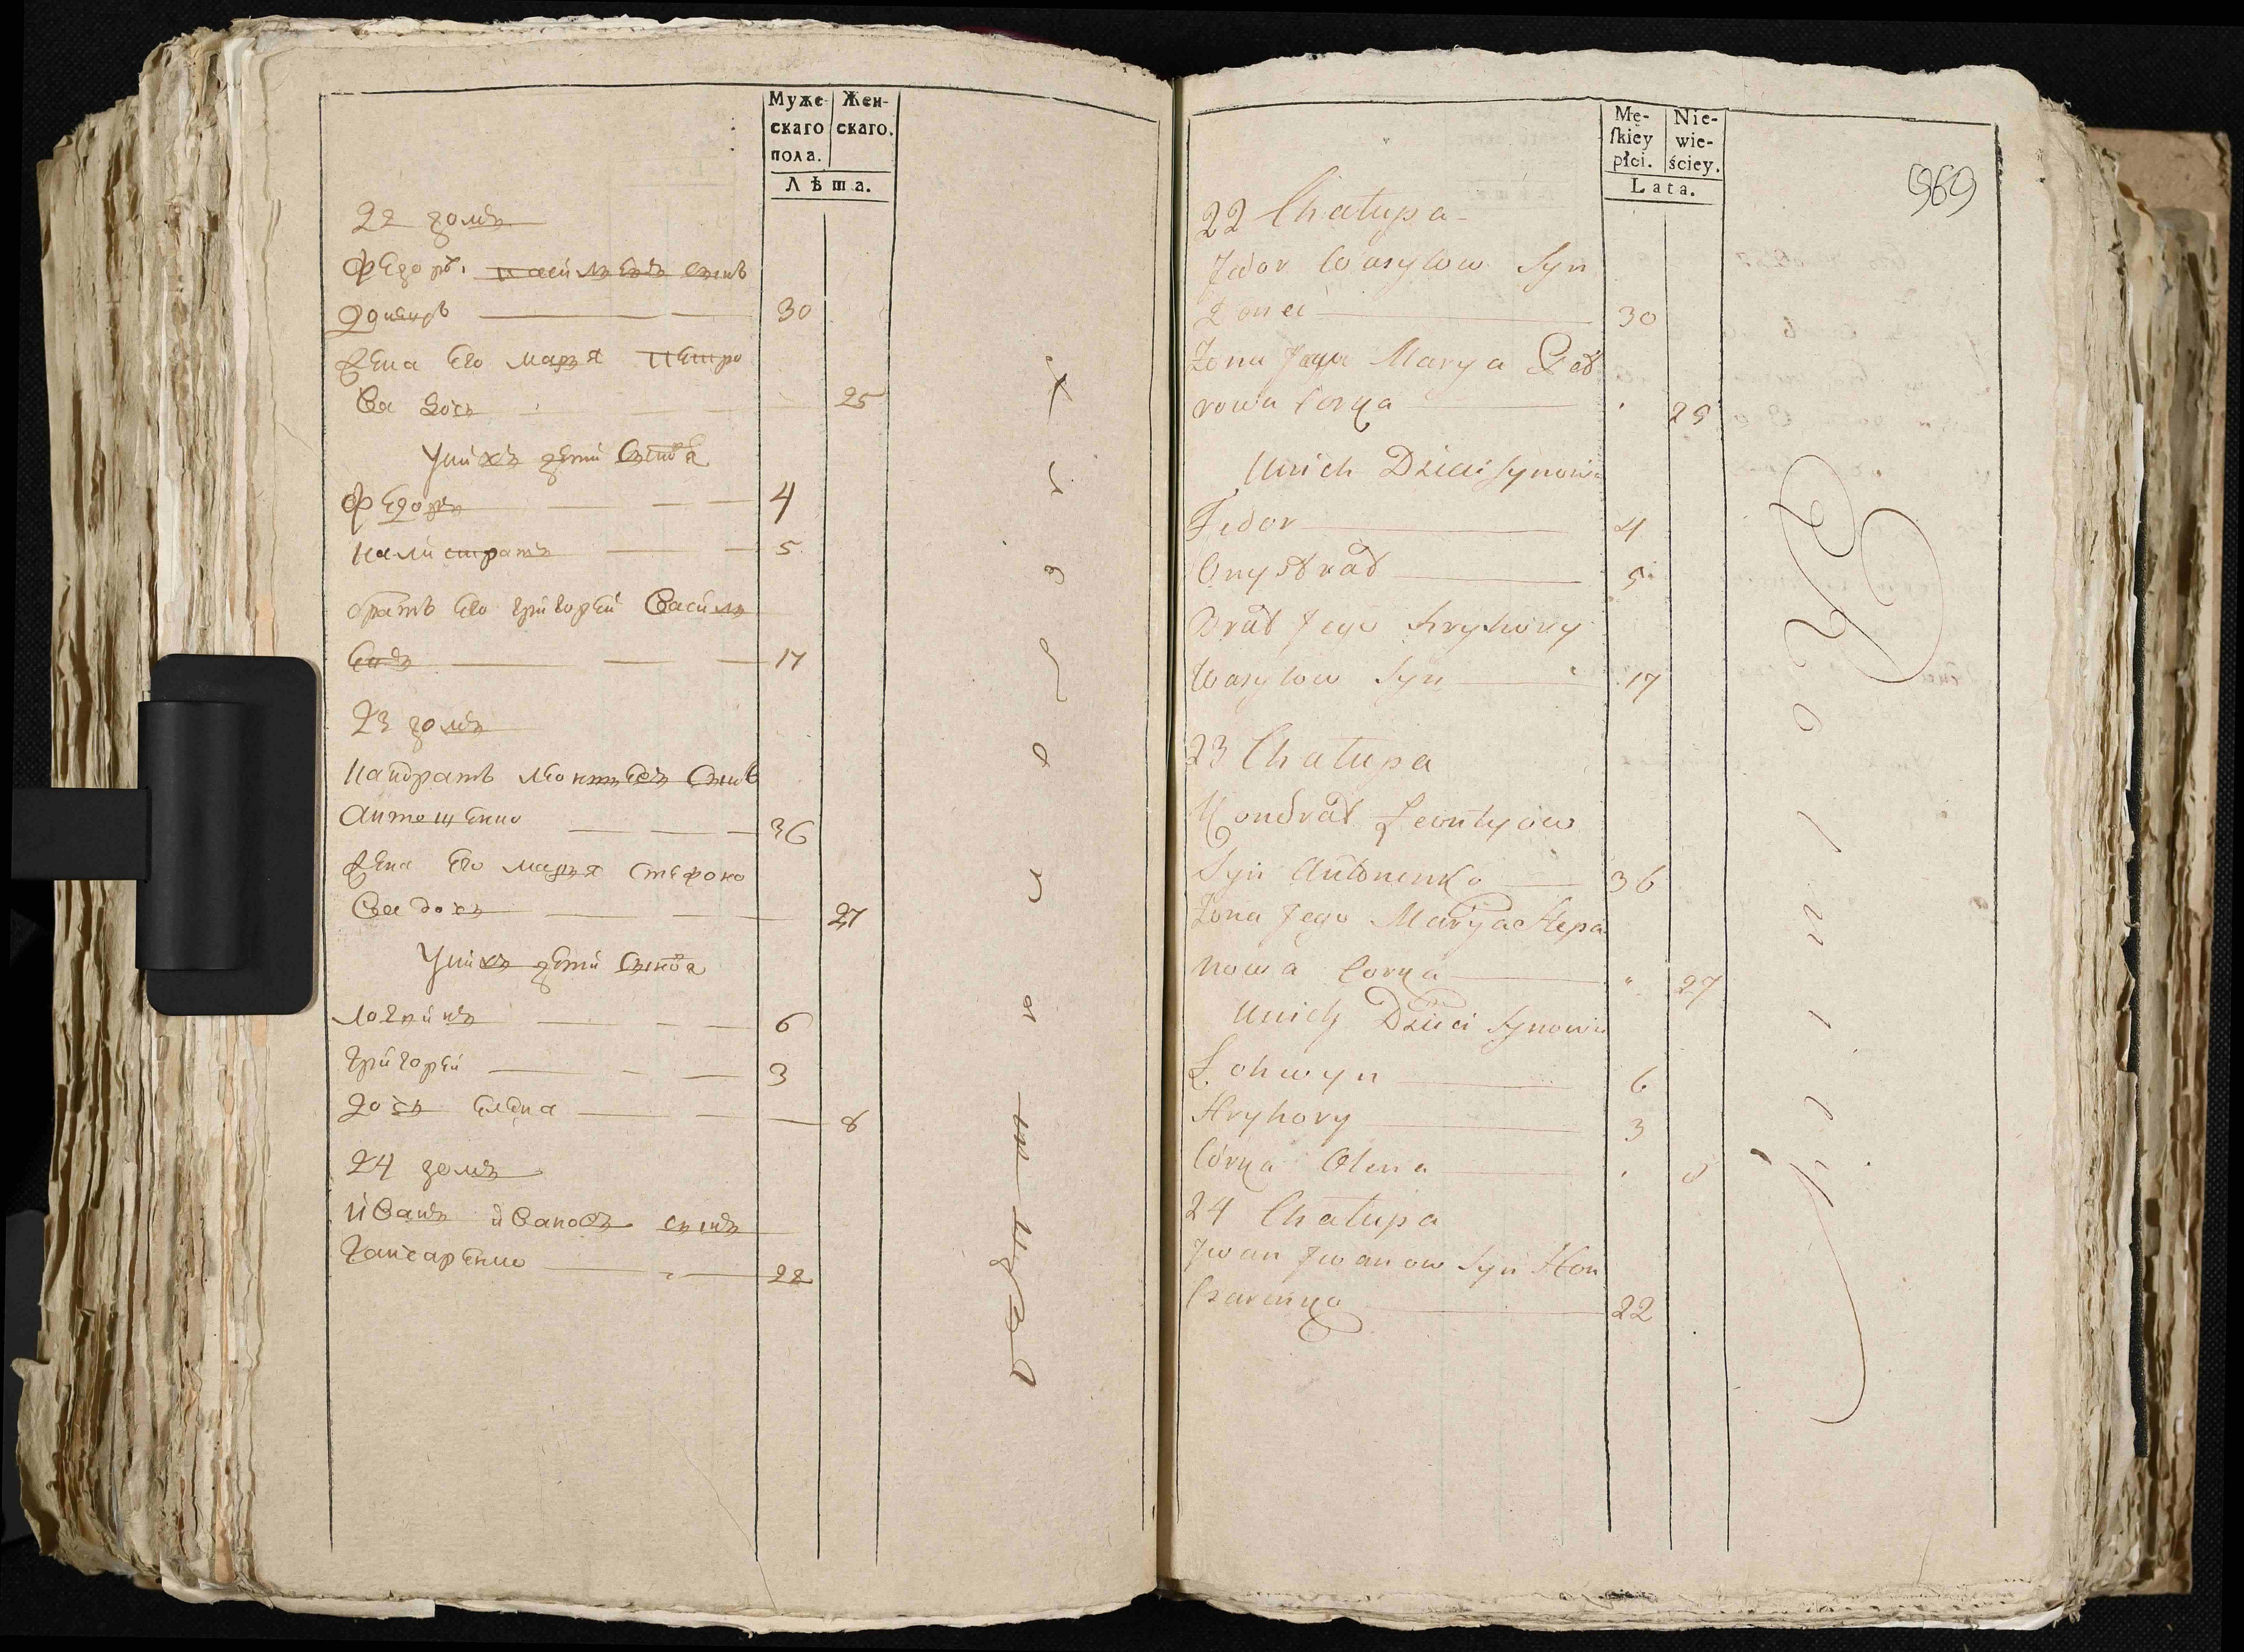 Муже-
скаго
пола.
Жен-
скаго.
Лѣта.
22 домъ
Федоръ Васильевъ сынъ
Донецъ 30
Жена Его марья Петро
Ва дочь 25
У нихъ дети Синовя
Федоръ 4
Калистратъ 5
братъ Его григорей Василь
Евъ 17
23 домъ
Кандратъ Леонтьевъ Синъ
Антоненко 36
Жена Его марья Степано
Ва дочь 27
У нихъ дети Синовя
Логвинъ 6
Григорей 3
дочь Елена 8
24 домъ
Иванъ Ивановъ сынъ
Гончаренко 22
Mę-
ſkiey
płci.
Nie-
wie-
ściey.
Lata.
969
22 Chałupa
Fedor Wasylow Syn
Doniec 30
Żona Jego Marya Piet
rowa Corka 25
U nich Dzieci Synowie
Fedor 4
Onystrat 5
Brat Jego Hryhory
Wasylow Syn 17
23 Chałupa
Kondrat Leontyiow
Syn Antonenko 36
Żona Jego Marya Stepa
nowa Corka 27
U nich Dzieci Synowie
Lohwyn 6
Hryhory 3
Córka Olena 8
24 Chałupa
Jwan Jwanow Syn Hon
czarenko 22